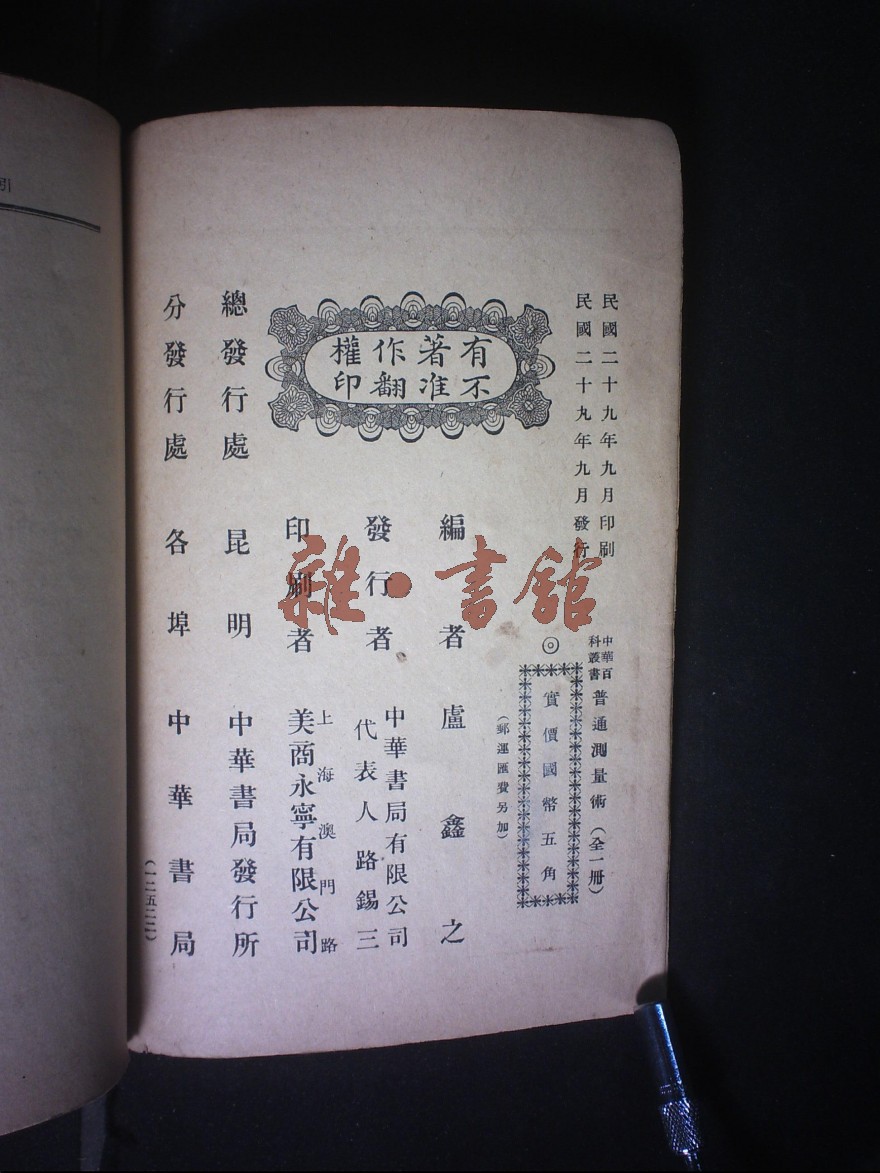 民國二十九年九月印刷
民國二十九年九月發行
中華百科叢書
普通測量術(全一冊)
◎
實價國幣五角
(郵運匯費另加)
有著作權
不准翻印
編者 盧鑫之
發行者 中華書局有限公司
代表人路錫三
印刷者 上海澳門路
美商永寧有限公司
總發行處 昆明 中華書局發行所
分發行處 各埠 中華書局
(一二五二二)
引
雜·書館